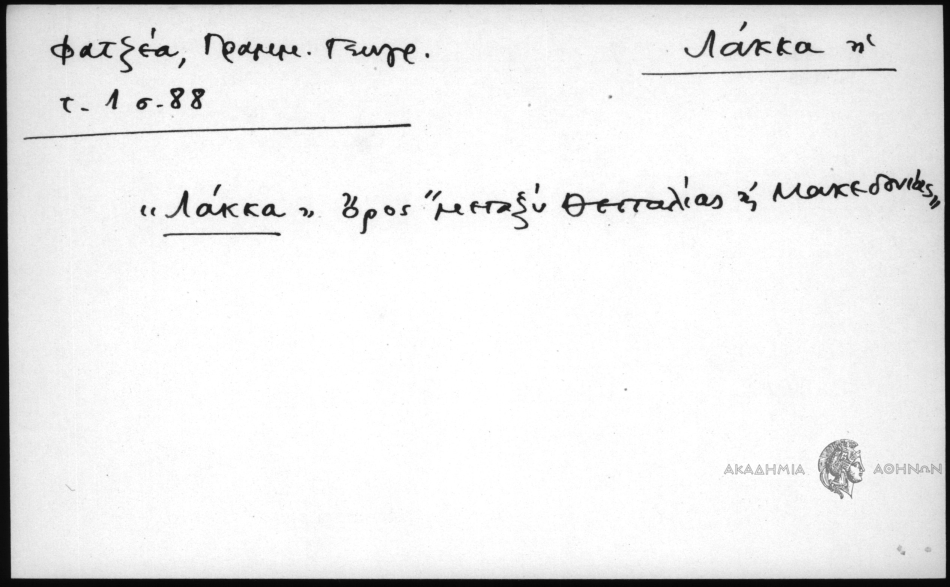 Φατζέα, Γραμμ. Γεωγρ.
Λάκκα ἡ
τ. 1 σ. 88
"Λάκκα" Ὄρος "μεταξὺ Θεσσαλίας κ Μακεδονίας"
ΑΚΑΔΗΜΙΑ ΑΘΗΝΩΝ